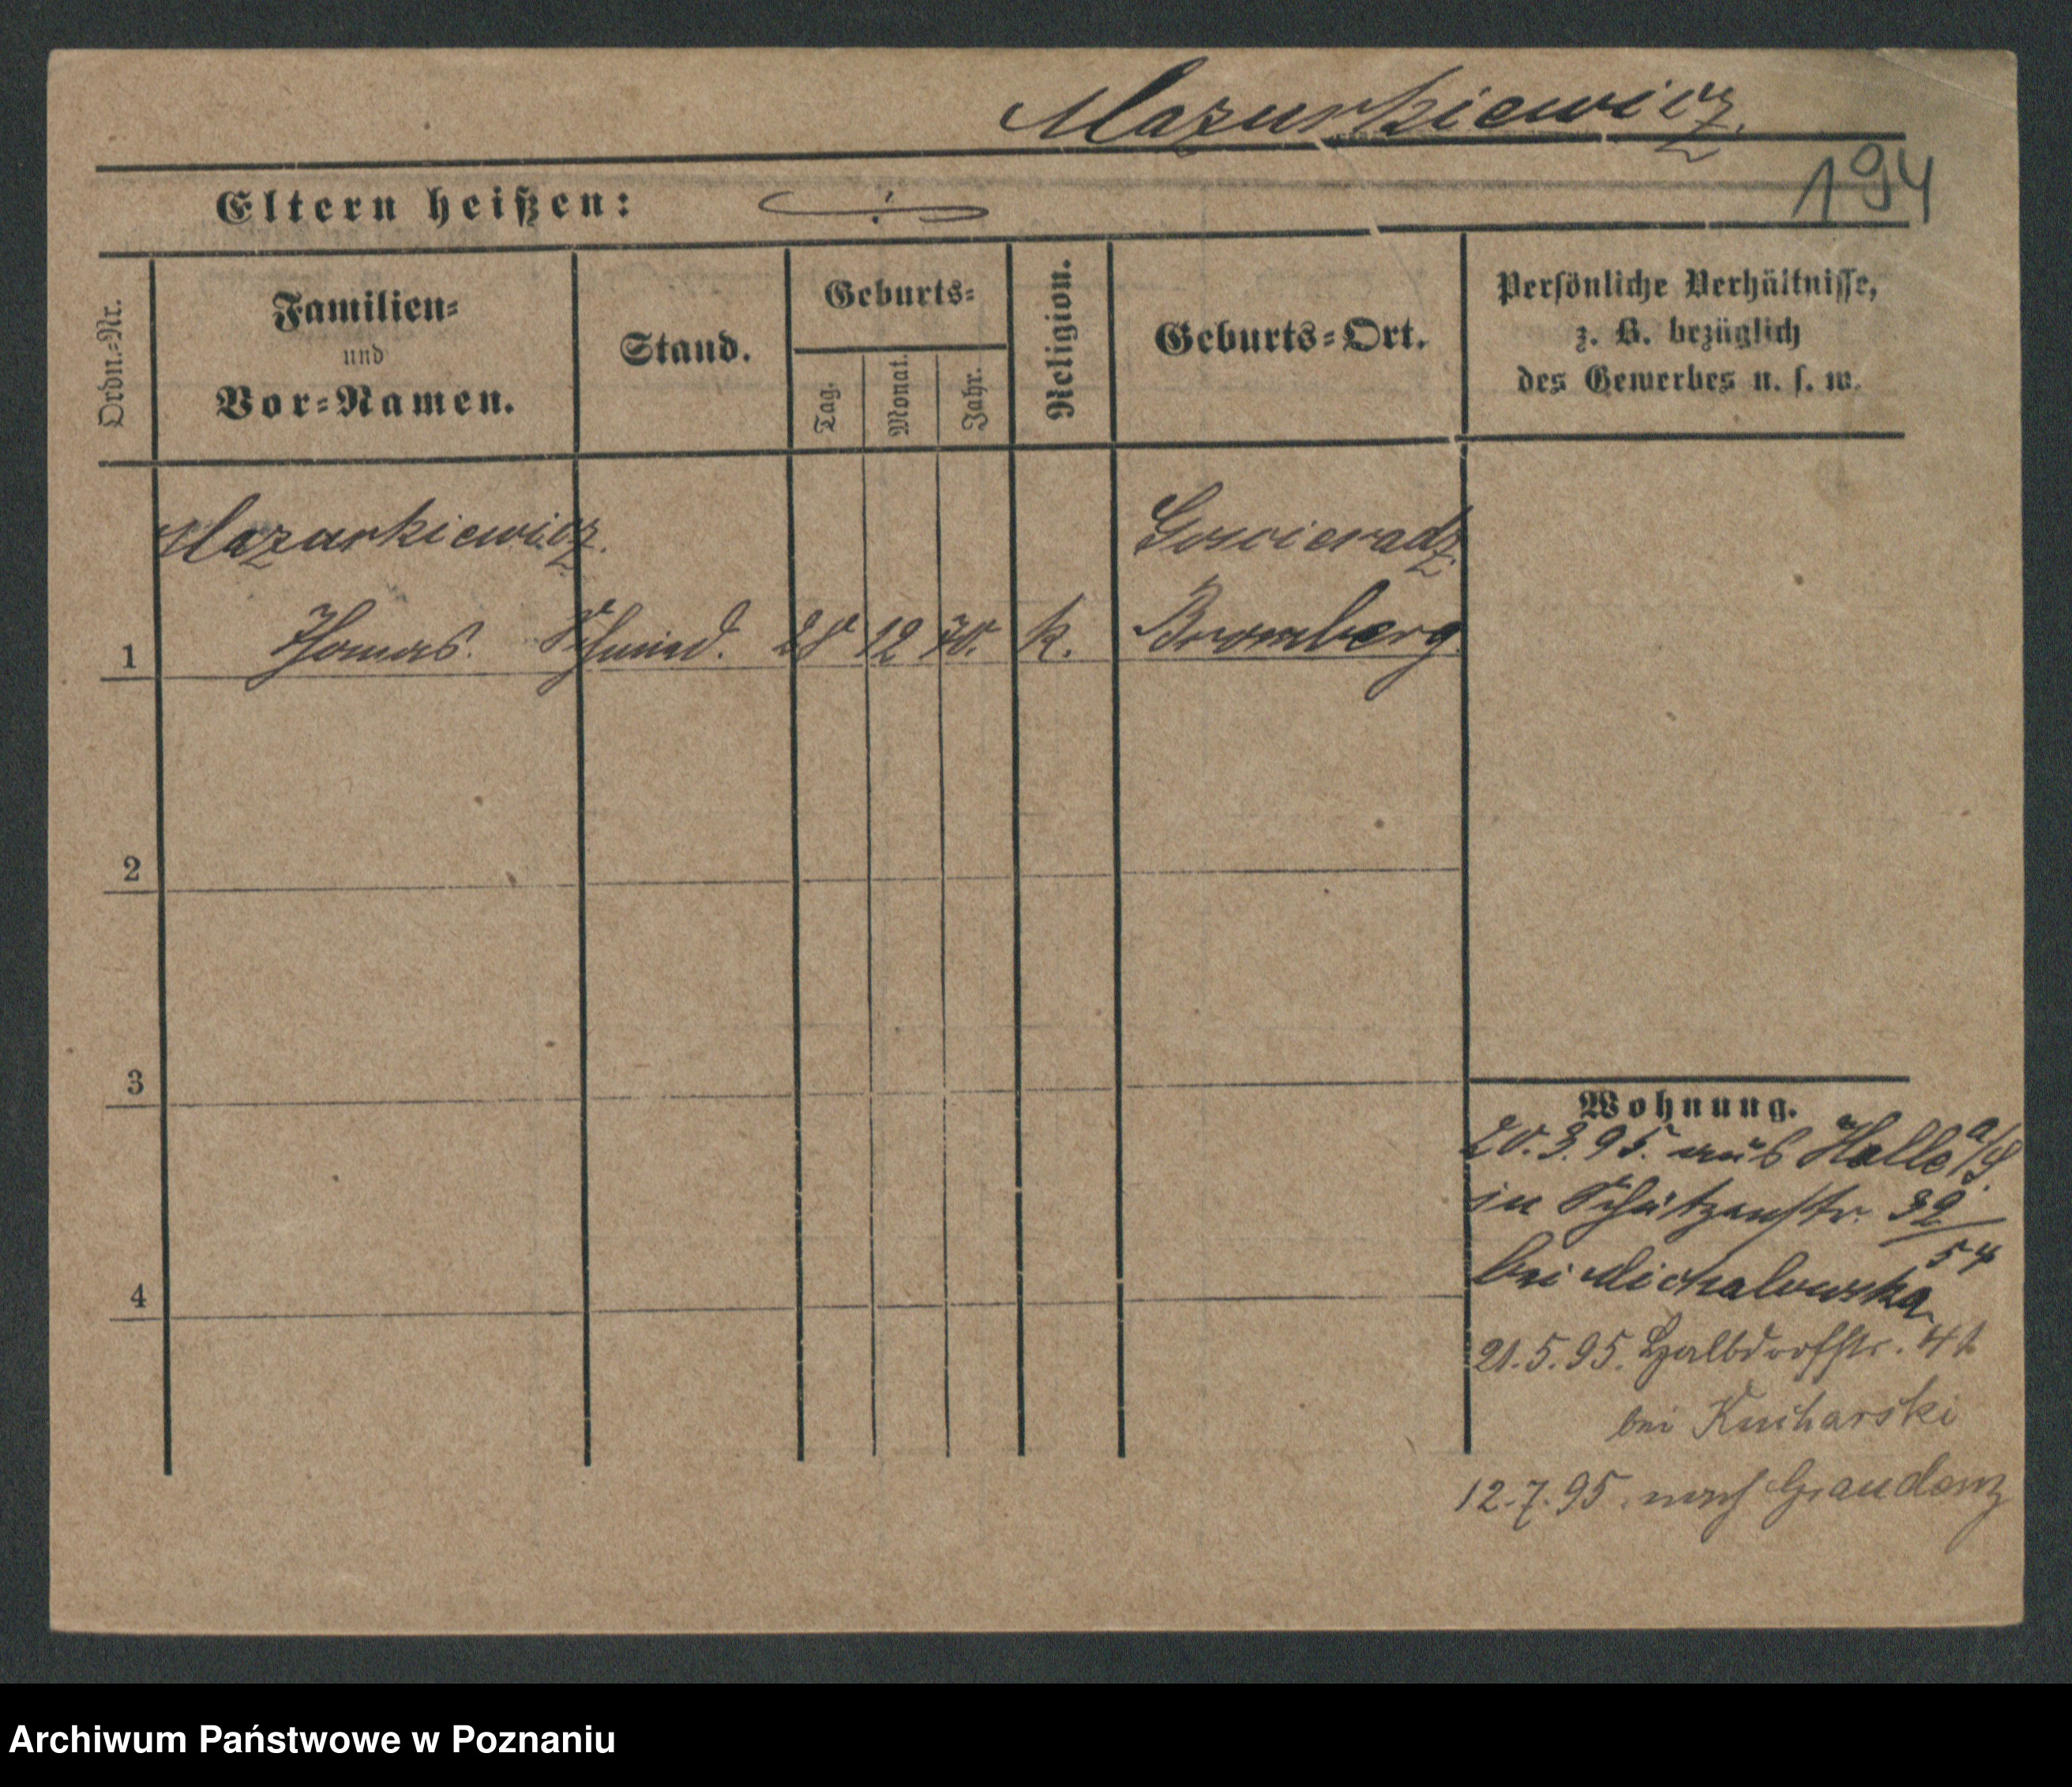 Mazurkiewicz.
194
Eltern heißen: ÷
Ordn.-Nr.
Familien-
und
Vor-Namen.
Stand.
Geburts-
Tag.
Monat.
Jahr.
Religion.
Geburts-Ort.
Persönliche Verhältnisse,
z. B. bezüglich
des Gewerbes u. s. w.
Mazurkiewicz. Goscieradz
1 Thomas. Schmied. 28 12 70. k. Bromberg.
2
3
4
Wohnung.
20.3.95. aus Halle a/S.
in Schützenstr. 32/54
bei Michalowska
21.5.95. Halbdorfstr. 41
bei Kucharski
12.7.95. nach Graudenz
Archiwum Państwowe w Poznaniu